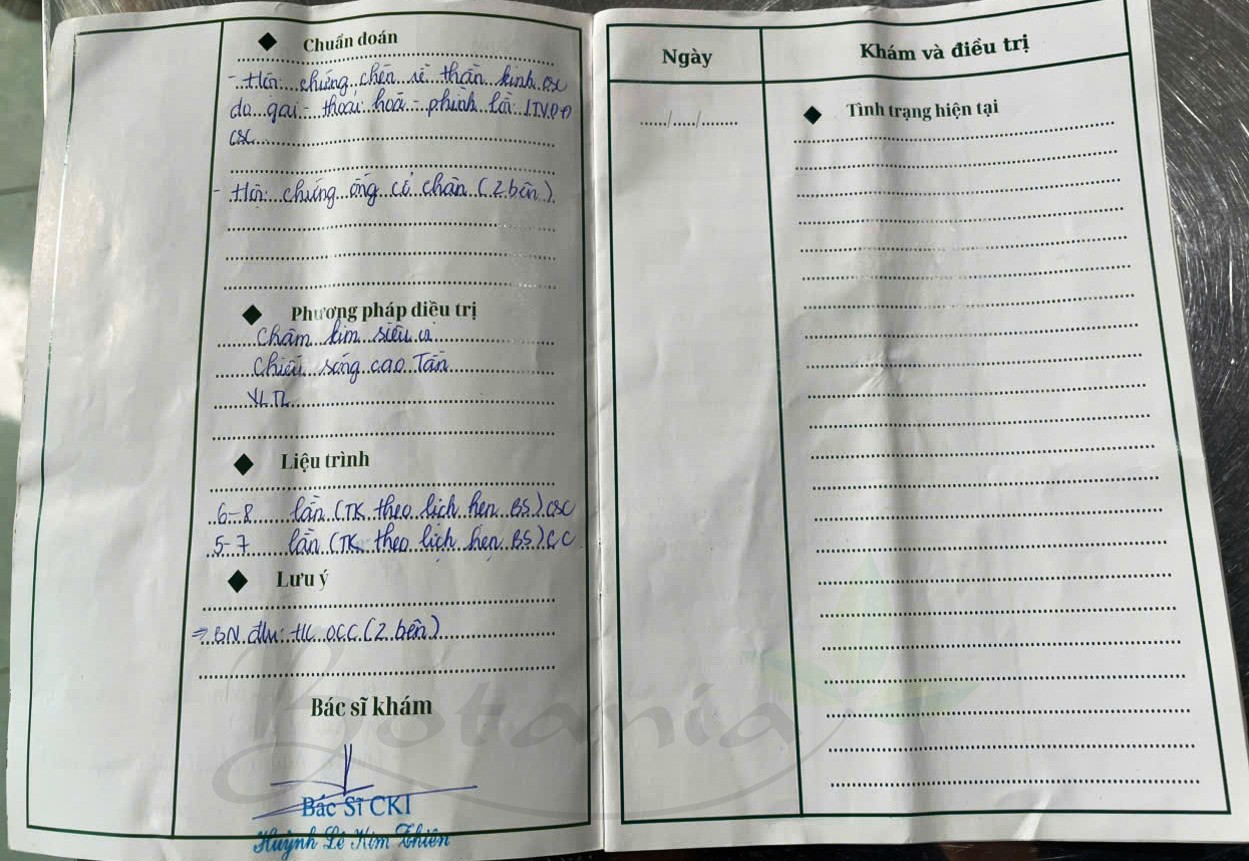 Chuẩn đoán
- Hội chứng chèn rễ thần kinh CSC
do gai - thoái hoá - phình lồi
CSC
- Hội chứng ống cổ chân (2 bên).
Phương pháp điều trị
Châm kim siêu
Chiếu sáng cao Tần
VLTL
Liệu trình
6-8 lần (TK theo lịch hẹn BS) CSC
5-7 lần (TK theo lịch hẹn BS) CC
Lưu ý
⇒ BN HC OCC (2 bên)
Bác sĩ khám
Bác Sĩ CKI
Huỳnh Lê Kim Thiên
Ngày
Khám và điều trị
...../...../........
Tình trạng hiện tại
Botania